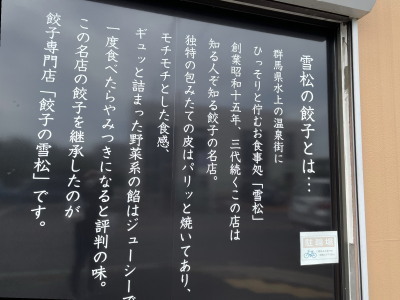 雪松の餃子とは…
群馬県水上の温泉街に
ひっそりと佇むお食事処「雪松」
創業昭和十五年、三代続くこの店は
知る人ぞ知る餃子の名店。
独特の包みたての皮はパリッと焼いてあり、
モチモチとした食感、
ギュッと詰まった野菜系の餡はジューシーで
一度食べたらやみつきになると評判の味。
この名店の餃子を継承したのが
餃子専門店「餃子の雪松」です。
駐輪場